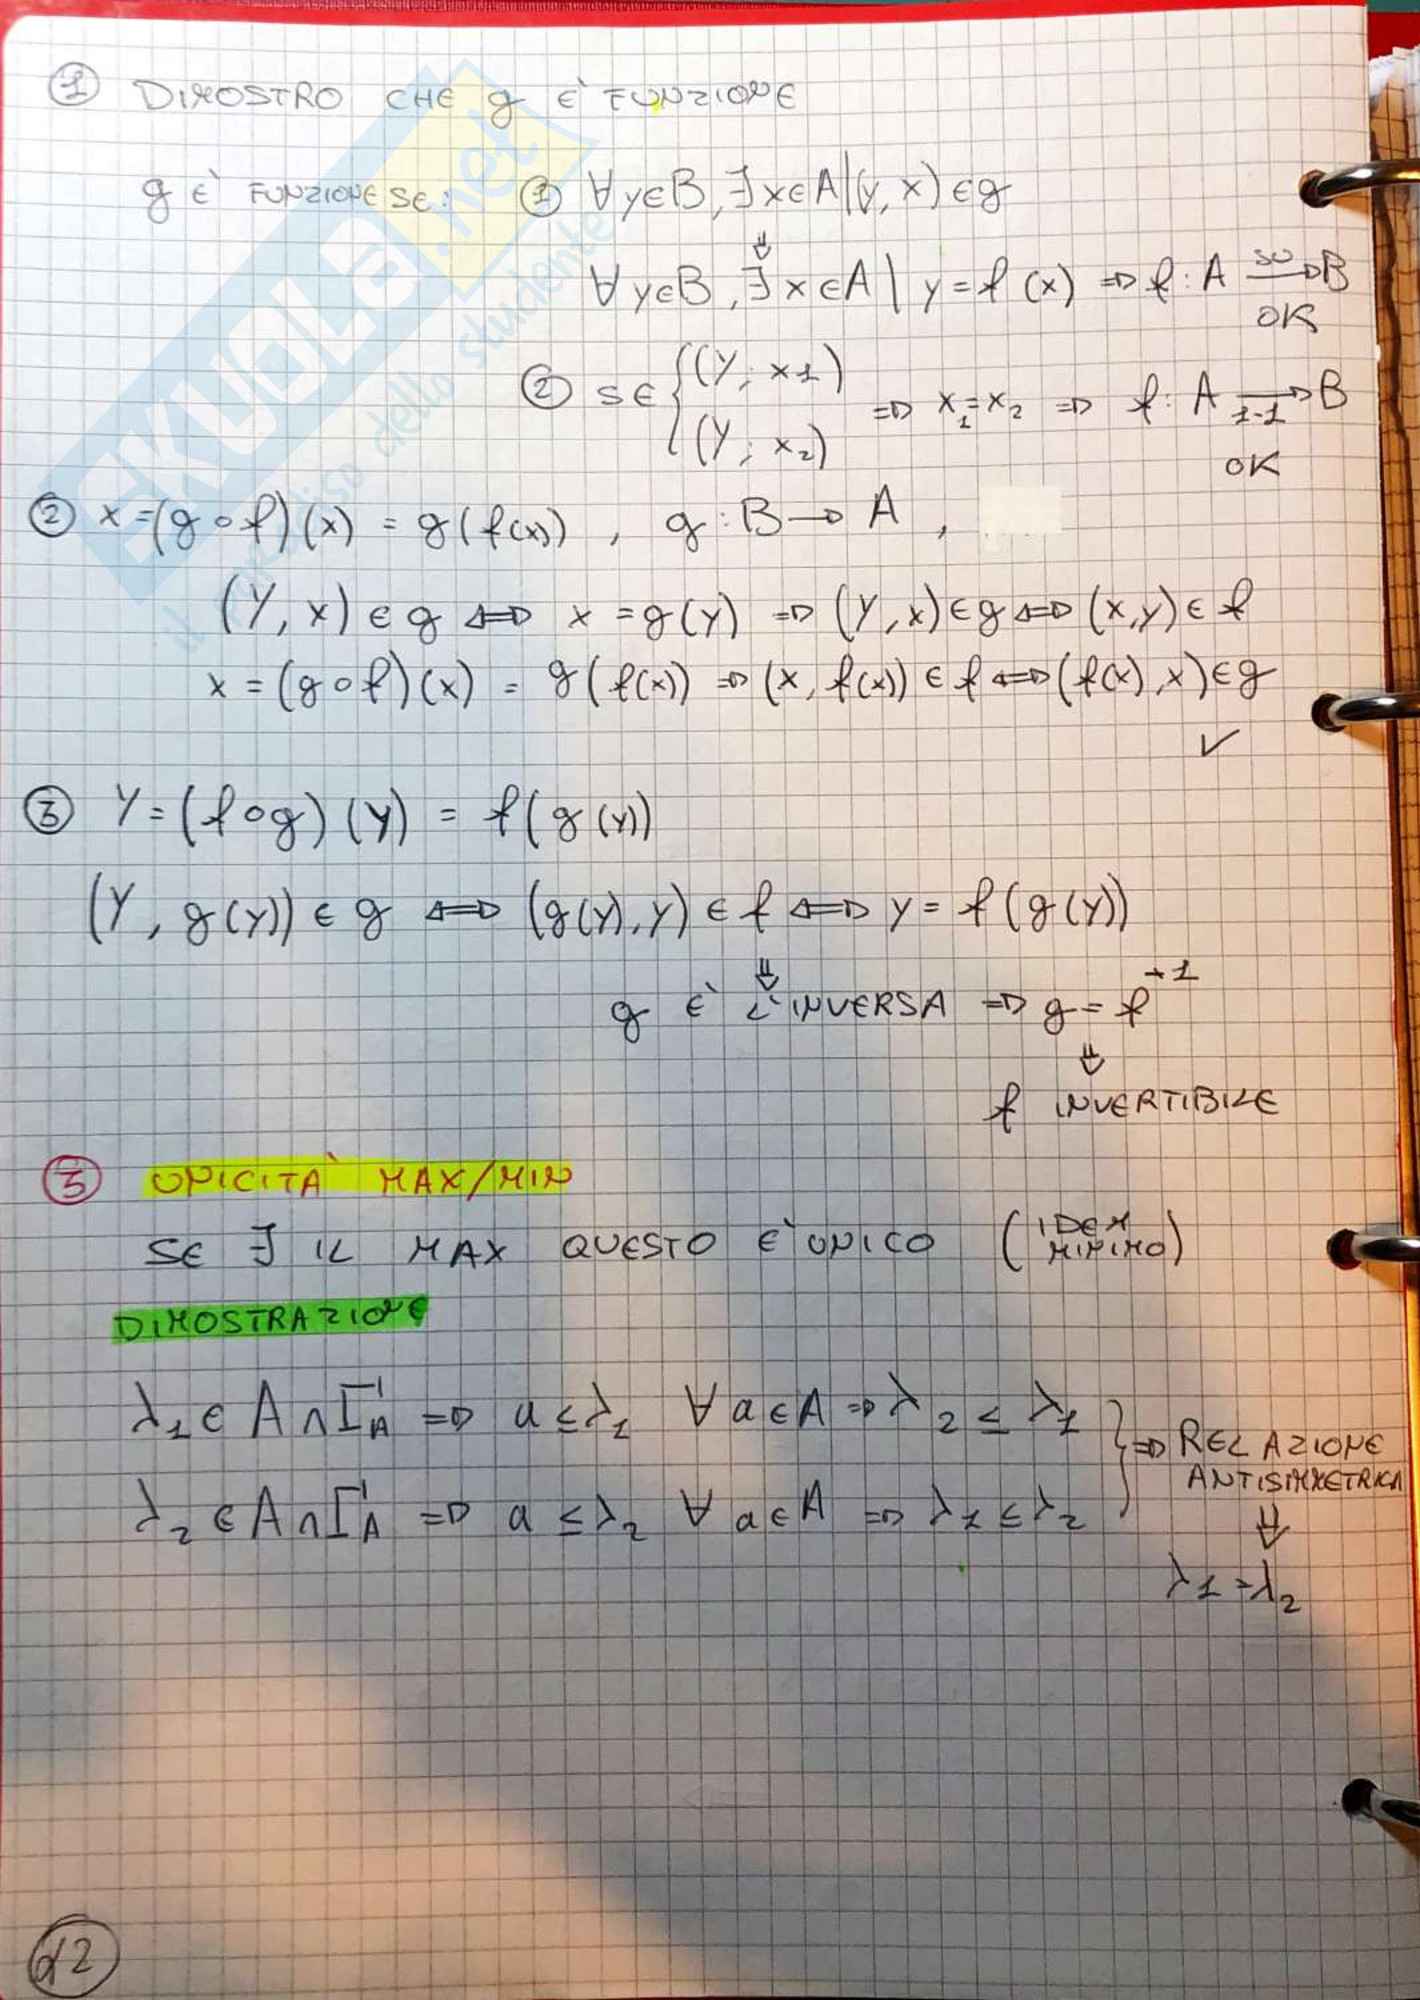 ① DIMOSTRO CHE g E' FUNZIONE
g E' FUNZIONE SE: ① ∀y∈B, ∃x∈A|(y, x)∈g
⇓
∀y∈B, ∃x∈A | y=f(x) ⇒ f: A →SU B
OK
② SE { (Y; x1) (Y; x₂) ⇒ x₁=x₂ ⇒ f: A →1-1 B
OK
② x=(g∘f)(x) = g(f(x)), g: B→A,
(Y, x)∈g ⇔ x=g(y) ⇒ (Y, x)∈g ⇔ (x,y)∈f
x=(g∘f)(x) = g(f(x)) ⇒ (x, f(x))∈f ⇔ (f(x), x)∈g
✓
③ Y=(f∘g)(Y) = f(g(y))
(Y, g(y))∈g ⇔ (g(y), y)∈f ⇔ y=f(g(y))
⇓
g E' L'INVERSA ⇒ g=f⁻¹
⇓
f INVERTIBILE
③ UNICITÀ MAX/MIN
SE ∃ IL MAX QUESTO E' UNICO (IDEM MINIMO)
DIMOSTRAZIONE
λ₁∈A∩Γ'A ⇒ a≤λ₁ ∀a∈A ⇒ λ₂≤λ₁
λ₂∈A∩Γ'A ⇒ a≤λ₂ ∀a∈A ⇒ λ₁≤λ₂ } ⇒ RELAZIONE ANTISIMMETRICA
⇓
λ1=λ₂
SKUOLA.net
il paradiso dello studente